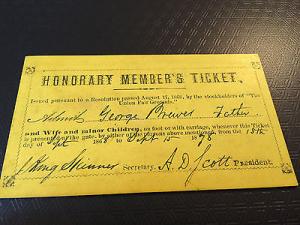 HONORARY MEMBER'S TICKET,
Issued pursuant to a Resolution passed August 17, by the stockholders of "The
Union Fair Grounds."
Admit George Brewer Father
and Wife and minor Children, on foot or with carriage, whenever this Ticket
is presented at the gate, by either of the persons above mentioned, from the
day of Sept 1868 to Sept 15 18
Secretary. A. D. Scott President.